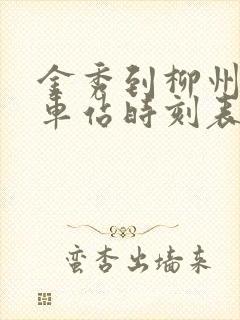 金秀到柳州
车估时刻表
蛮杏出墙来